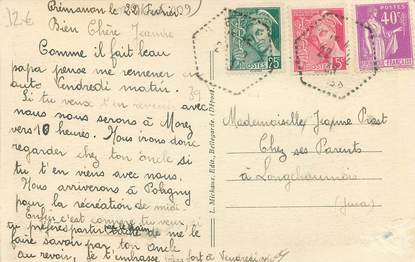 12€
Prémanon le 22 Février
Bien Chère Jeanne
Comme il fait beau
papa pense me remener en
auto Vendredi matin.
Si tu veux t'en revenir avec
nous nous serons à Morez
vers 10 heures. Nous irons donc
regarder chez ton oncle si
tu t'en viens avec nous.
Nous arriverons à Poligny
pour la récréation de midi.
Enfin c'est comme tu veux si
tu préfères partir de me le
faire savoir par ton oncle
au revoir, je t'embrasse bien fort à Vendredi
39
L. Michaux, Edit., Bellegarde
POSTES 25
POSTES
POSTES 40c
Mademoiselle Jeanne Prost
Chez ses Parents
à Longchaumois
(Jura)